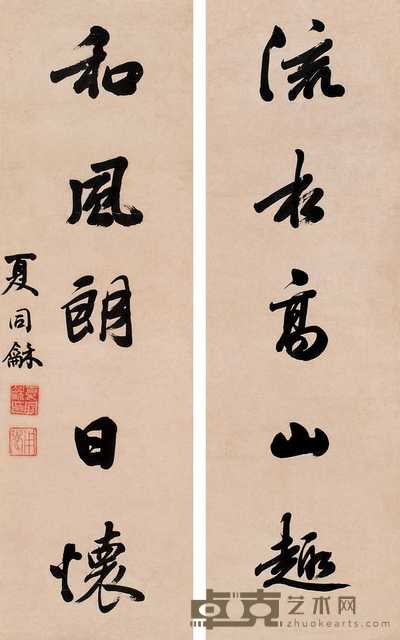 流水高山趣
和風朗日懷
夏同龢
卓克艺术网
zhuokearts.com